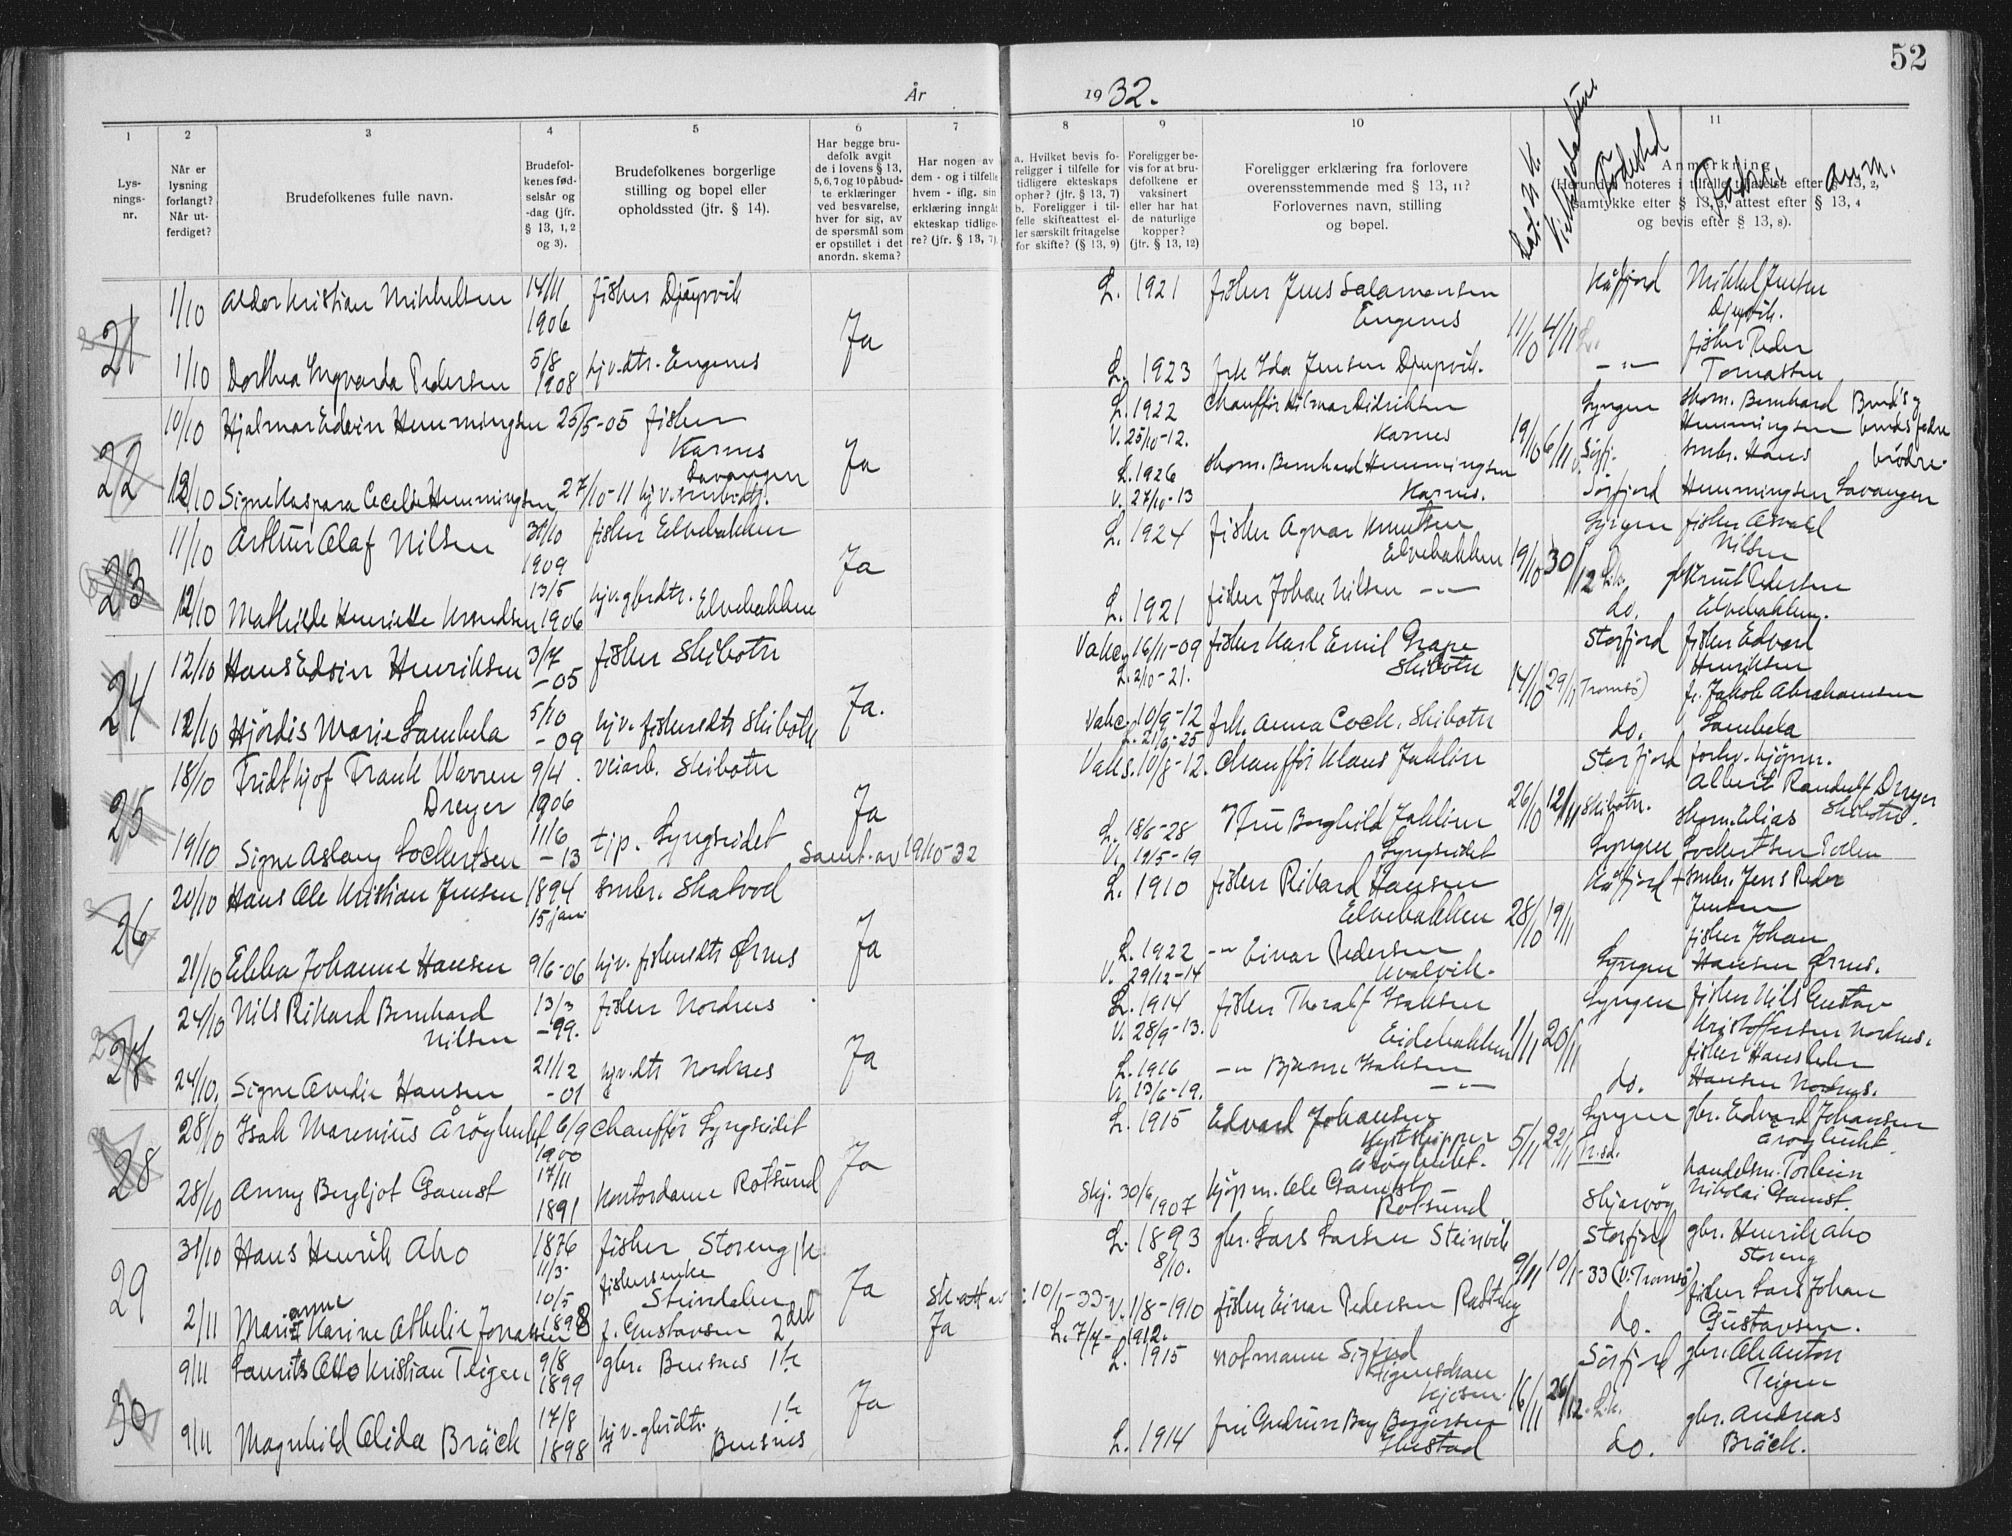 52
År 1932.
1 2 3 4 5 6 7 8 9 10 11
Lysnings-nr.
Når er lysning forlangt? Når utferdiget?
Brudefolkenes fulle navn.
Brudefolkenes fødselsår og -dag (jfr. § 13, 1, 2 og 3).
Brudefolkenes borgerlige stilling og bopel eller opholdssted (jfr. § 14).
Har begge brudefolk avgit de i lovens § 13, 5, 6, 7 og 10 påbudte erklæringer ved besvarelse, hver for sig, av de spørsmål som er opstillet i det anordn. skema?
Har nogen av dem - og i tilfelle hvem - iflg. sin erklæring inngåt ekteskap tidligere? (jfr. § 13, 7).
a. Hvilket bevis foreligger i tilfelle for tidligere ekteskaps ophør? (jfr. § 13, 7) b. Foreligger i tilfelle skifteattest eller særskilt fritagelse for skifte? (§ 13, 9)
Foreligger bevis for at brudefolkene er vaksinert eller har hat de naturlige kopper? (jfr. § 13, 12)
Foreligger erklæring fra forlovere overensstemmende med § 13, 11? Forlovernes navn, stilling og bopel.
Anmerkning
Herunder noteres i tilfelle tillatelse efter § 13, 2, samtykke efter § 13, 3, attest efter § 13, 4 og bevis efter § 13, 8).
Fødested
anm.
21
1/10 Aldor Kristian Mikkelsen 14/11 1906 fisker Djupvik Ja L. 1921 fisker Jens Salamonsen Engenes 11/10 4/11 Kåfjord Mikkel Jensen Djupvik.
1/10 Dorthea Ingvarda Pedersen 5/8 1908 hjv. dtr. Engenes L. 1923 frk Ida Jensen Djupvik. - " - fisker Peder Tomassen
22
10/10 Hjalmar Edvin Hemmingsen 25/5-05 fisker Karnes Ja L. 1922 V. 25/10-12. Chauffør Hilmar Didriksen Karnes 19/10 6/11 Lyngen Bernhard Hemmingsen
12/10 Signe Kaspara Cecelie Hemmingsen 27/10-11 hjv. Lavangen L. 1926 V. 27/10-13 Bernhard Hemmingsen Karnes. Sørfjord smbr. Hans Hemmingsen Lavangen
23
11/10 Arthur Olaf Nilsen 30/10 1909 fisker Elvebakken Ja L. 1924 fisker Agnar Knutsen Elvebakken 19/10 30/12 Lyngen fisker Asvald Nilsen
12/10 Mathilde Henriette Knudsen 13/5 1906 hjv. gbrdtr. Elvebakken L. 1921 fisker Johan Nilsen - " - do. Knut Pedersen Elvebakken.
24
12/10 Hans Edvin Henriksen 3/7 -05 fisker Skibotn Ja. Vakc. 16/11-09 L. 2/10-21. fisker Karl Emil Grape Skibotn 14/10 29/11 Storfjord Tromsø) fisker Edvard Henriksen
12/10 Hjørdis Marie Lambela 5/10 -09 hjv. fiskerdtr Skibotn Vakc. 10/9-12 L. 21/6-25 frk. Anna Cock. Skibotn do. f. Jakob Abrahamsen Lambela
25
18/10 Fridthjof Frank Warren Dreyer 9/4. 1906 veiarb. Skibotn Ja Vaks. 10/8-12. Chauffør Klaus Jaklin 26/10 12/11 Storfjord Skibotn. forhv. kjøpm. Albert Randulf Dreyer Skibotn.
19/10 Signe Aslaug Lockertsen 11/6 -13 tjp. Lyngseidet Samt. av 19/10-32 L. 18/6-28 V. 19/5-19 Fru Borghild Jaklin Lyngseidet Lyngen Elias Lockertsen Pollen
26
20/10 Hans Ole Kristian Jensen 1894 15 jan. smbr. Skatvod Ja L. 1910 fisker Rikard Hansen Elvebakken 28/10 19/11 Kåfjord + smbr. Jens Peder Jensen
21/10 Ebba Johanne Hansen 9/6-06 hjv. fiskerdtr Ørnes L. 1922 V. 29/12-14 - " - Einar Pedersen Kvalvik. Lyngen fisker Johan Hansen Ørnes.
27
24/10 Nils Rikard Bernhard Nilsen 13/3 -99. fisker Nordnes Ja L. 1914 V. 28/9-13. fisker Thoralf Isaksen Eidebakken 1/11 20/11 Lyngen fisker Nils Gustav Kristoffersen Nordnes.
24/10. Signe Ovedie Hansen 21/12 -01 hjv. dtr Nordnes L. 1916 V. 13/6-19. - " - Bjarne Isaksen - " - do. fisker Hans Hansen Nordnes.
28
28/10 Isak Marenius Årøybukt 6/9 1900 Chauffør Lyngseidet Ja L. 1915 Edvard Johansen Årøybukt. 5/11 22/11 Lyngen gbr. Edvard Johansen Årøybukt.
28/10 Anny Bergljot Gamst 17/11 1891 Kontordame Rotsund Skj. 30/6 1907 kjøpm. Ole Gamst Rotsund Skjervøy handelsm. Torbein Nikolai Gamst.
29
31/10 Hans Henrik Aho 1876 11/3- fisker Storeng Ja L. 1893 8/10. gbr. Lars Larsen Steinvik 9/11 10/1-33 (v. Tromsø) Storfjord gbr. Henrik Aho Storeng
2/11 Marianne Karine Athelie Jonassen 10/5 1898 fiskerenke Steindalen f. Gustavsen 2det Ja Sk-att av 10/1-33- V. 1/8-1910 L. 7/7-1912. fisker Einar Pedersen Rasteby do. fisker Lars Johan Gustavsen.
30
9/11 Laurits Otto Kristian Teigen 9/8 1899 gbr. Bensnes 1ste Ja L. 1915 Sigfred 16/11 26/12. Sørfjord gbr. Ole Anton Teigen
9/11 Magnhild Alida Bräck 17/8 1898 hjv. gbrdtr. Bensnes 1ste L. 1914 fru Gudrun Berg Hustad do. gbr. Andreas Bräck.